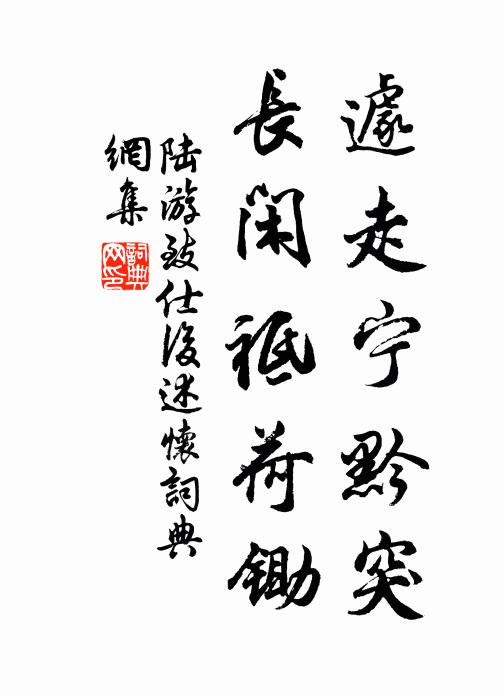 遽走宁黔突
長閑祗荷鋤
陆游致仕後述懷詞典
網集
詞典網印